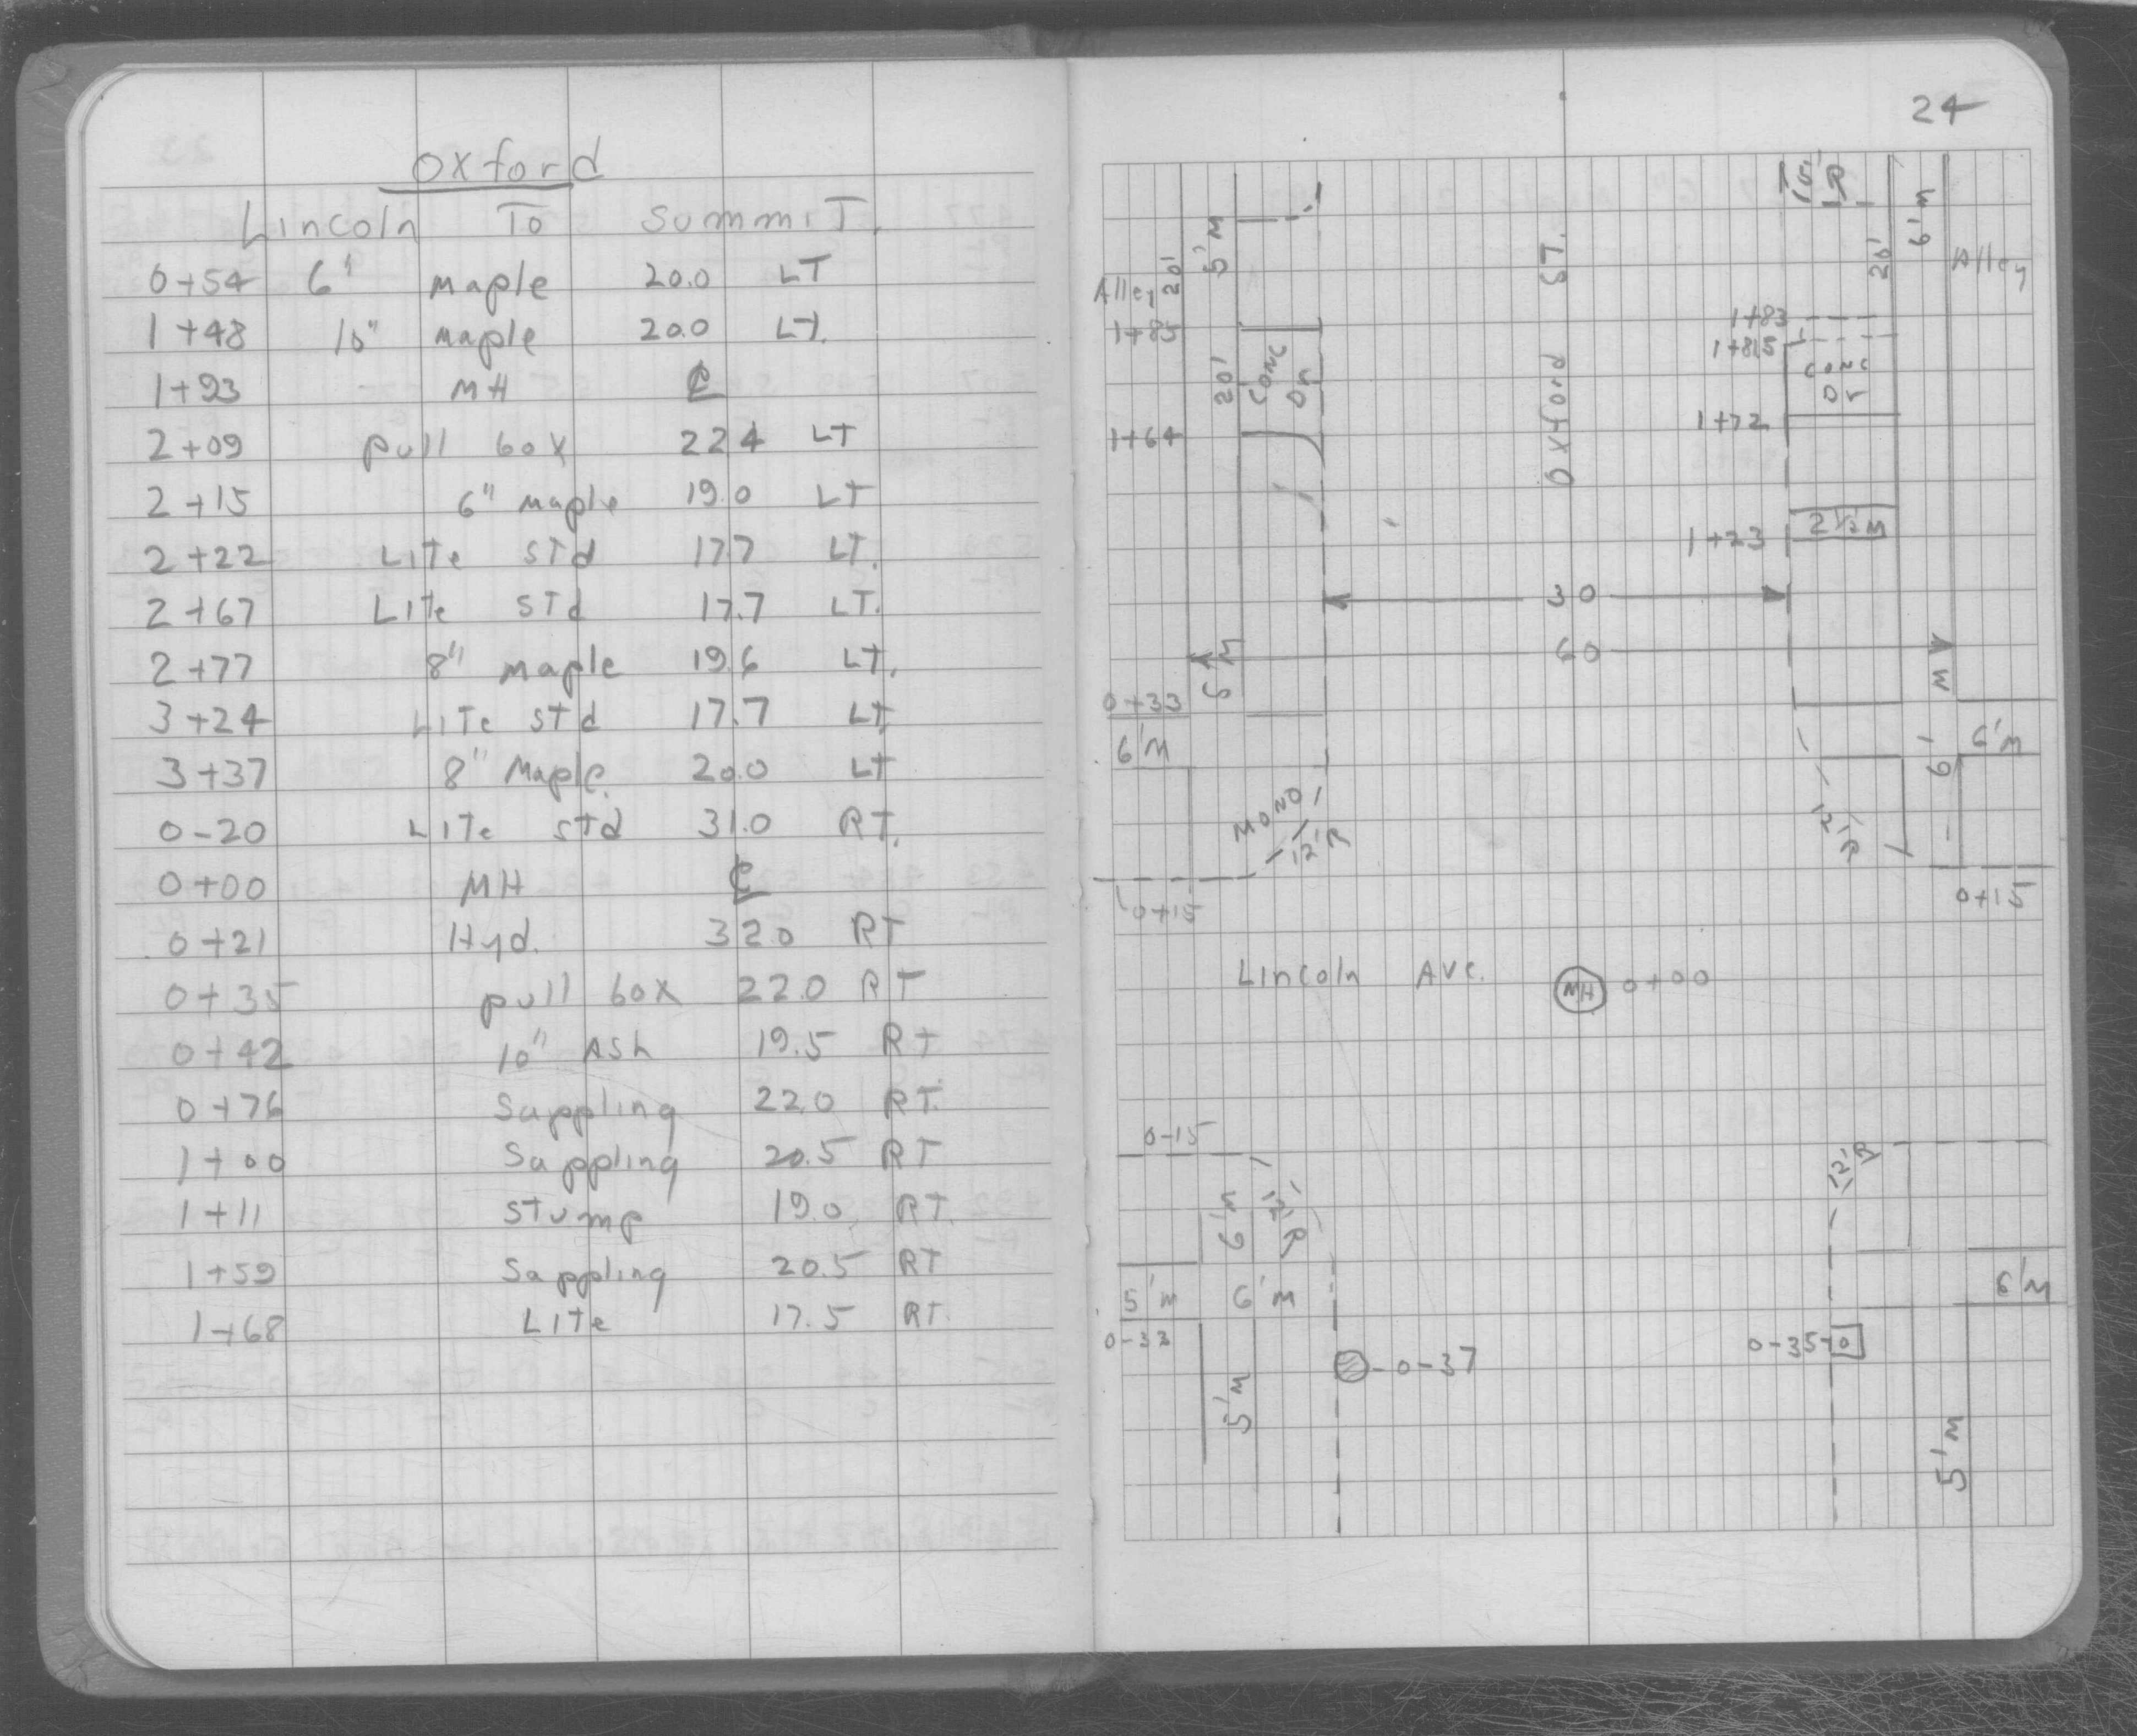 Oxford
Lincoln To Summit.
0+54 6" Maple 20.0 LT
1+48 10" Maple 20.0 LT.
1+93 MH ℄
2+09 pull box 22.4 LT
2+15 6" Maple 19.0 LT
2+22 Lite Std 17.7 LT.
2+67 Lite STd 17.7 LT.
2+77 8" Maple 19.6 LT.
3+24 Lite std 17.7 LT
3+37 8" Maple. 20.0 LT
0-20 Lite std 31.0 RT.
0+00 MH ℄
0+21 Hyd. 32.0 RT
0+35 pull box 22.0 RT
0+42 10" Ash 19.5 RT
0+76 Sappling 22.0 RT.
1+00 Sappling 20.5 RT
1+11 Stump 19.0 RT.
1+59 Sappling 20.5 RT
1+68 Lite 17.5 RT.
24
15'R
5'M
6'M
20'
20'
Alley
Alley
Oxford ST.
1+83
1+85
1+81.5
20'
Conc Dr
Conc Dr
1+72
1+64
2 1/2 M
1+23
30
60
6'M
6'M
0+33
6'M
6'M
MONO
12'R
12'R
0+15
0+15
Lincoln Ave.
MH 0+00
0-15
12'R
12'R
6'M
5'M 6'M
6'M
0-33
0-35
0-37
5'M
5'M